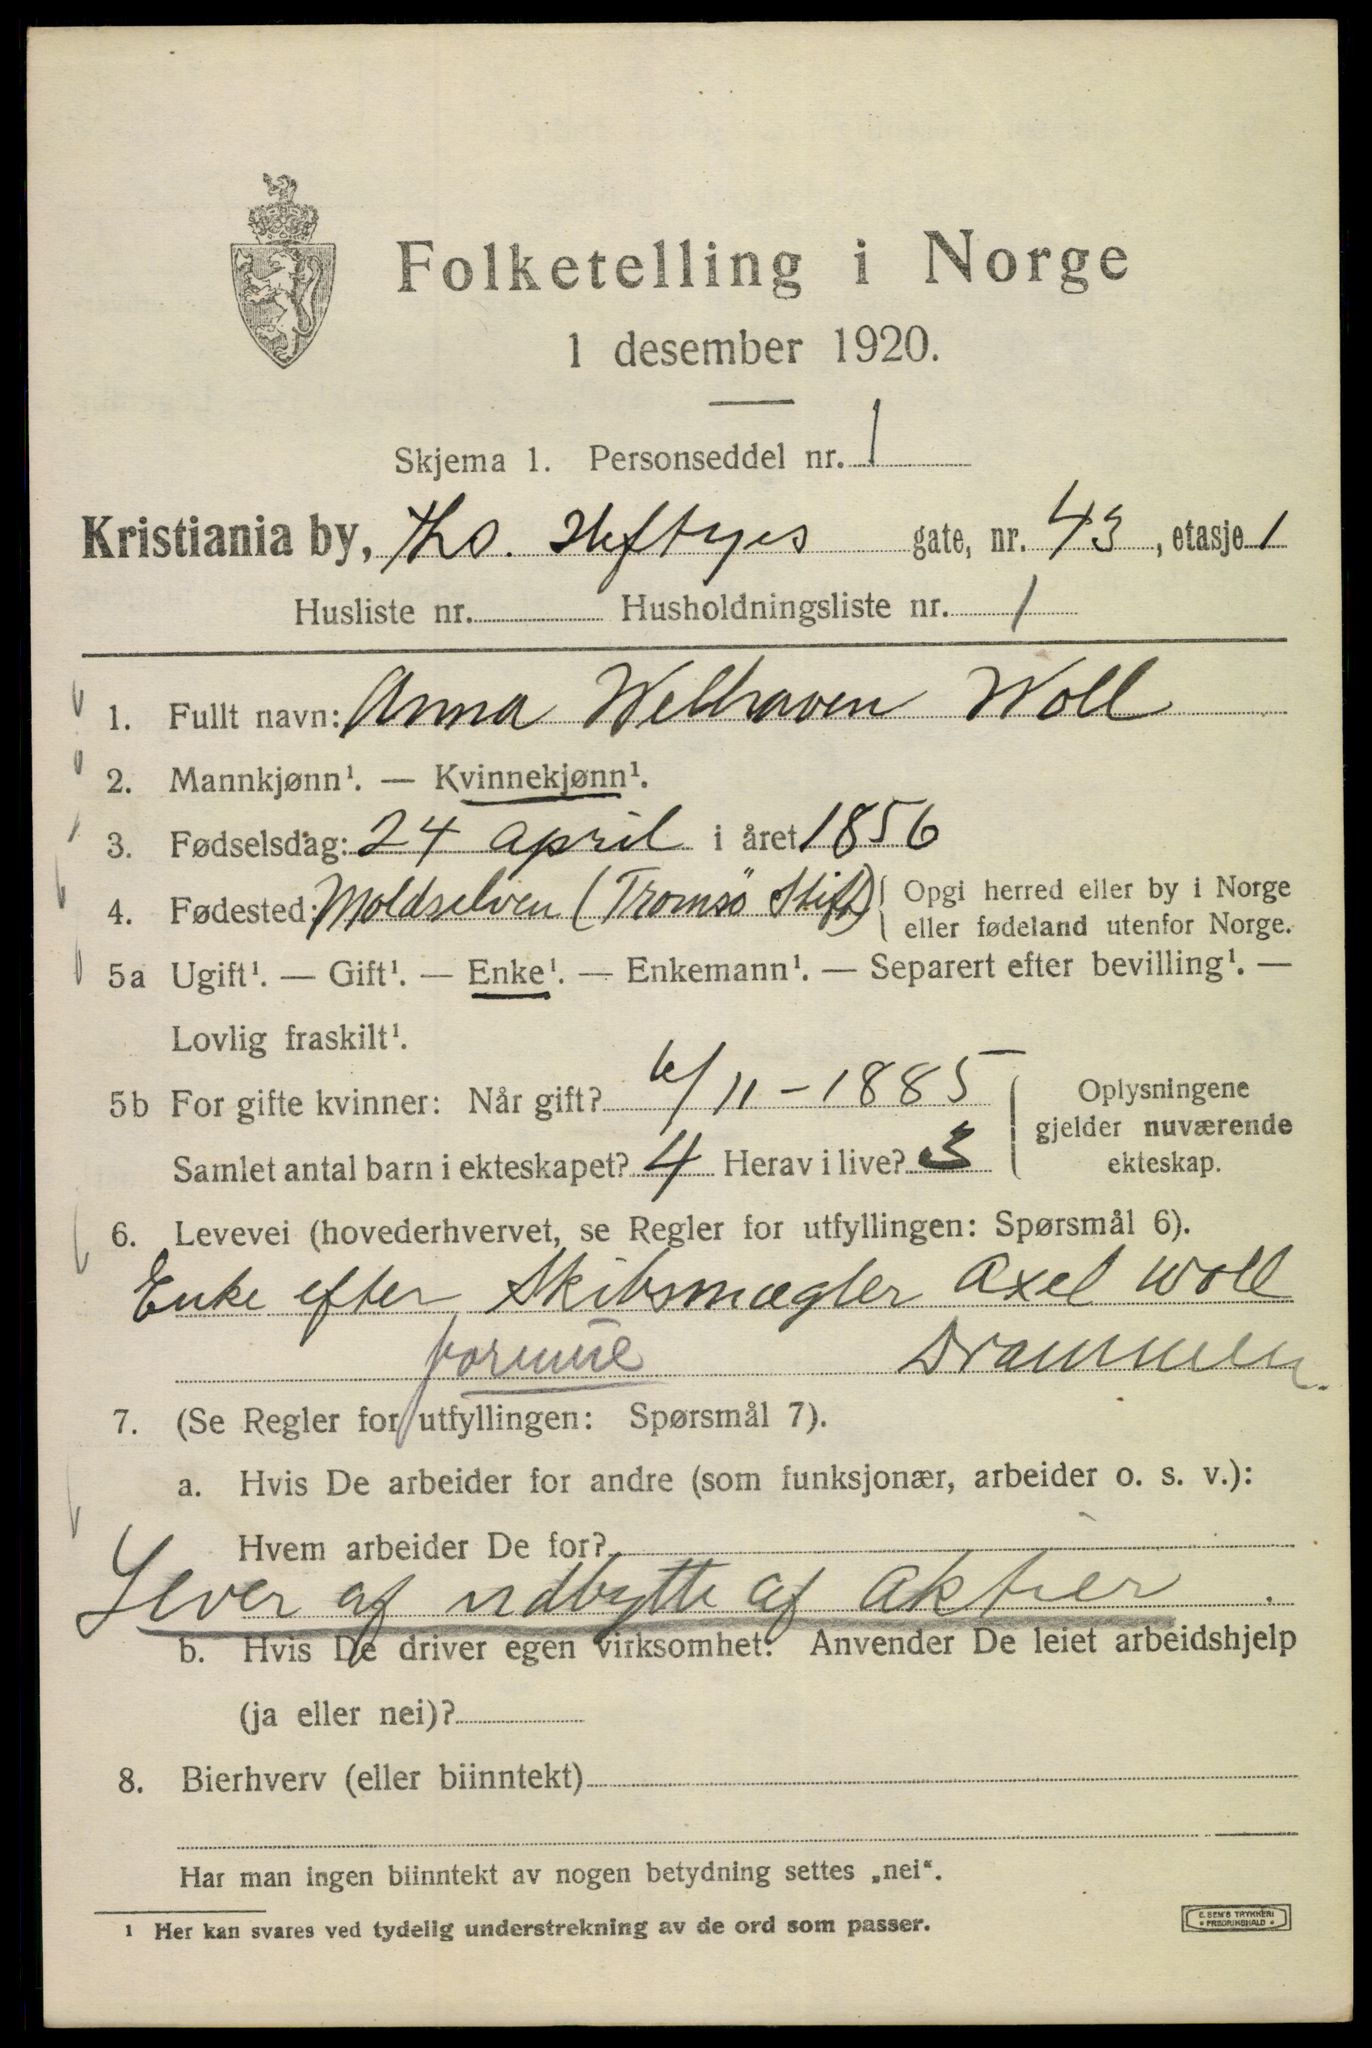 Folketelling i Norge
1 desember 1920.
Skjema 1. Personseddel nr. 1
Kristiania by, Ths. Heftyes gate, nr. 43, etasje 1
Husliste nr. Husholdningsliste nr. 1
1. Fullt navn: Anna Welhaven Woll
2. Mannkjønn¹. — Kvinnekjønn¹.
3. Fødselsdag: 24 april i året 1856
4. Fødested: Moldselven (Tromsö Stift) Opgi herred eller by i Norge
eller fødeland utenfor Norge.
5a Ugift¹. — Gift¹. — Enke¹. — Enkemann¹. — Separert efter bevilling¹. —
Lovlig fraskilt¹.
5b For gifte kvinner: Når gift? 6/11 - 1885
Samlet antal barn i ekteskapet? 4 Herav i live? 3
Oplysningene
gjelder nuværende
ekteskap.
6. Levevei (hovederhvervet, se Regler for utfyllingen: Spørsmål 6).
Enke efter Skibsmægler Axel Woll
formue Drammen.
7. (Se Regler for utfyllingen: Spørsmål 7).
a. Hvis De arbeider for andre (som funksjonær, arbeider o. s. v.):
Hvem arbeider De for?
Lever af udbytte af Aktier.
b. Hvis De driver egen virksomhet: Anvender De leiet arbeidshjelp
(ja eller nei)?
8. Bierhverv (eller biinntekt)
Har man ingen biinntekt av nogen betydning settes „nei“.
¹ Her kan svares ved tydelig understrekning av de ord som passer.
E. SEM'S TRYKKERI
FREDRIKSHALD